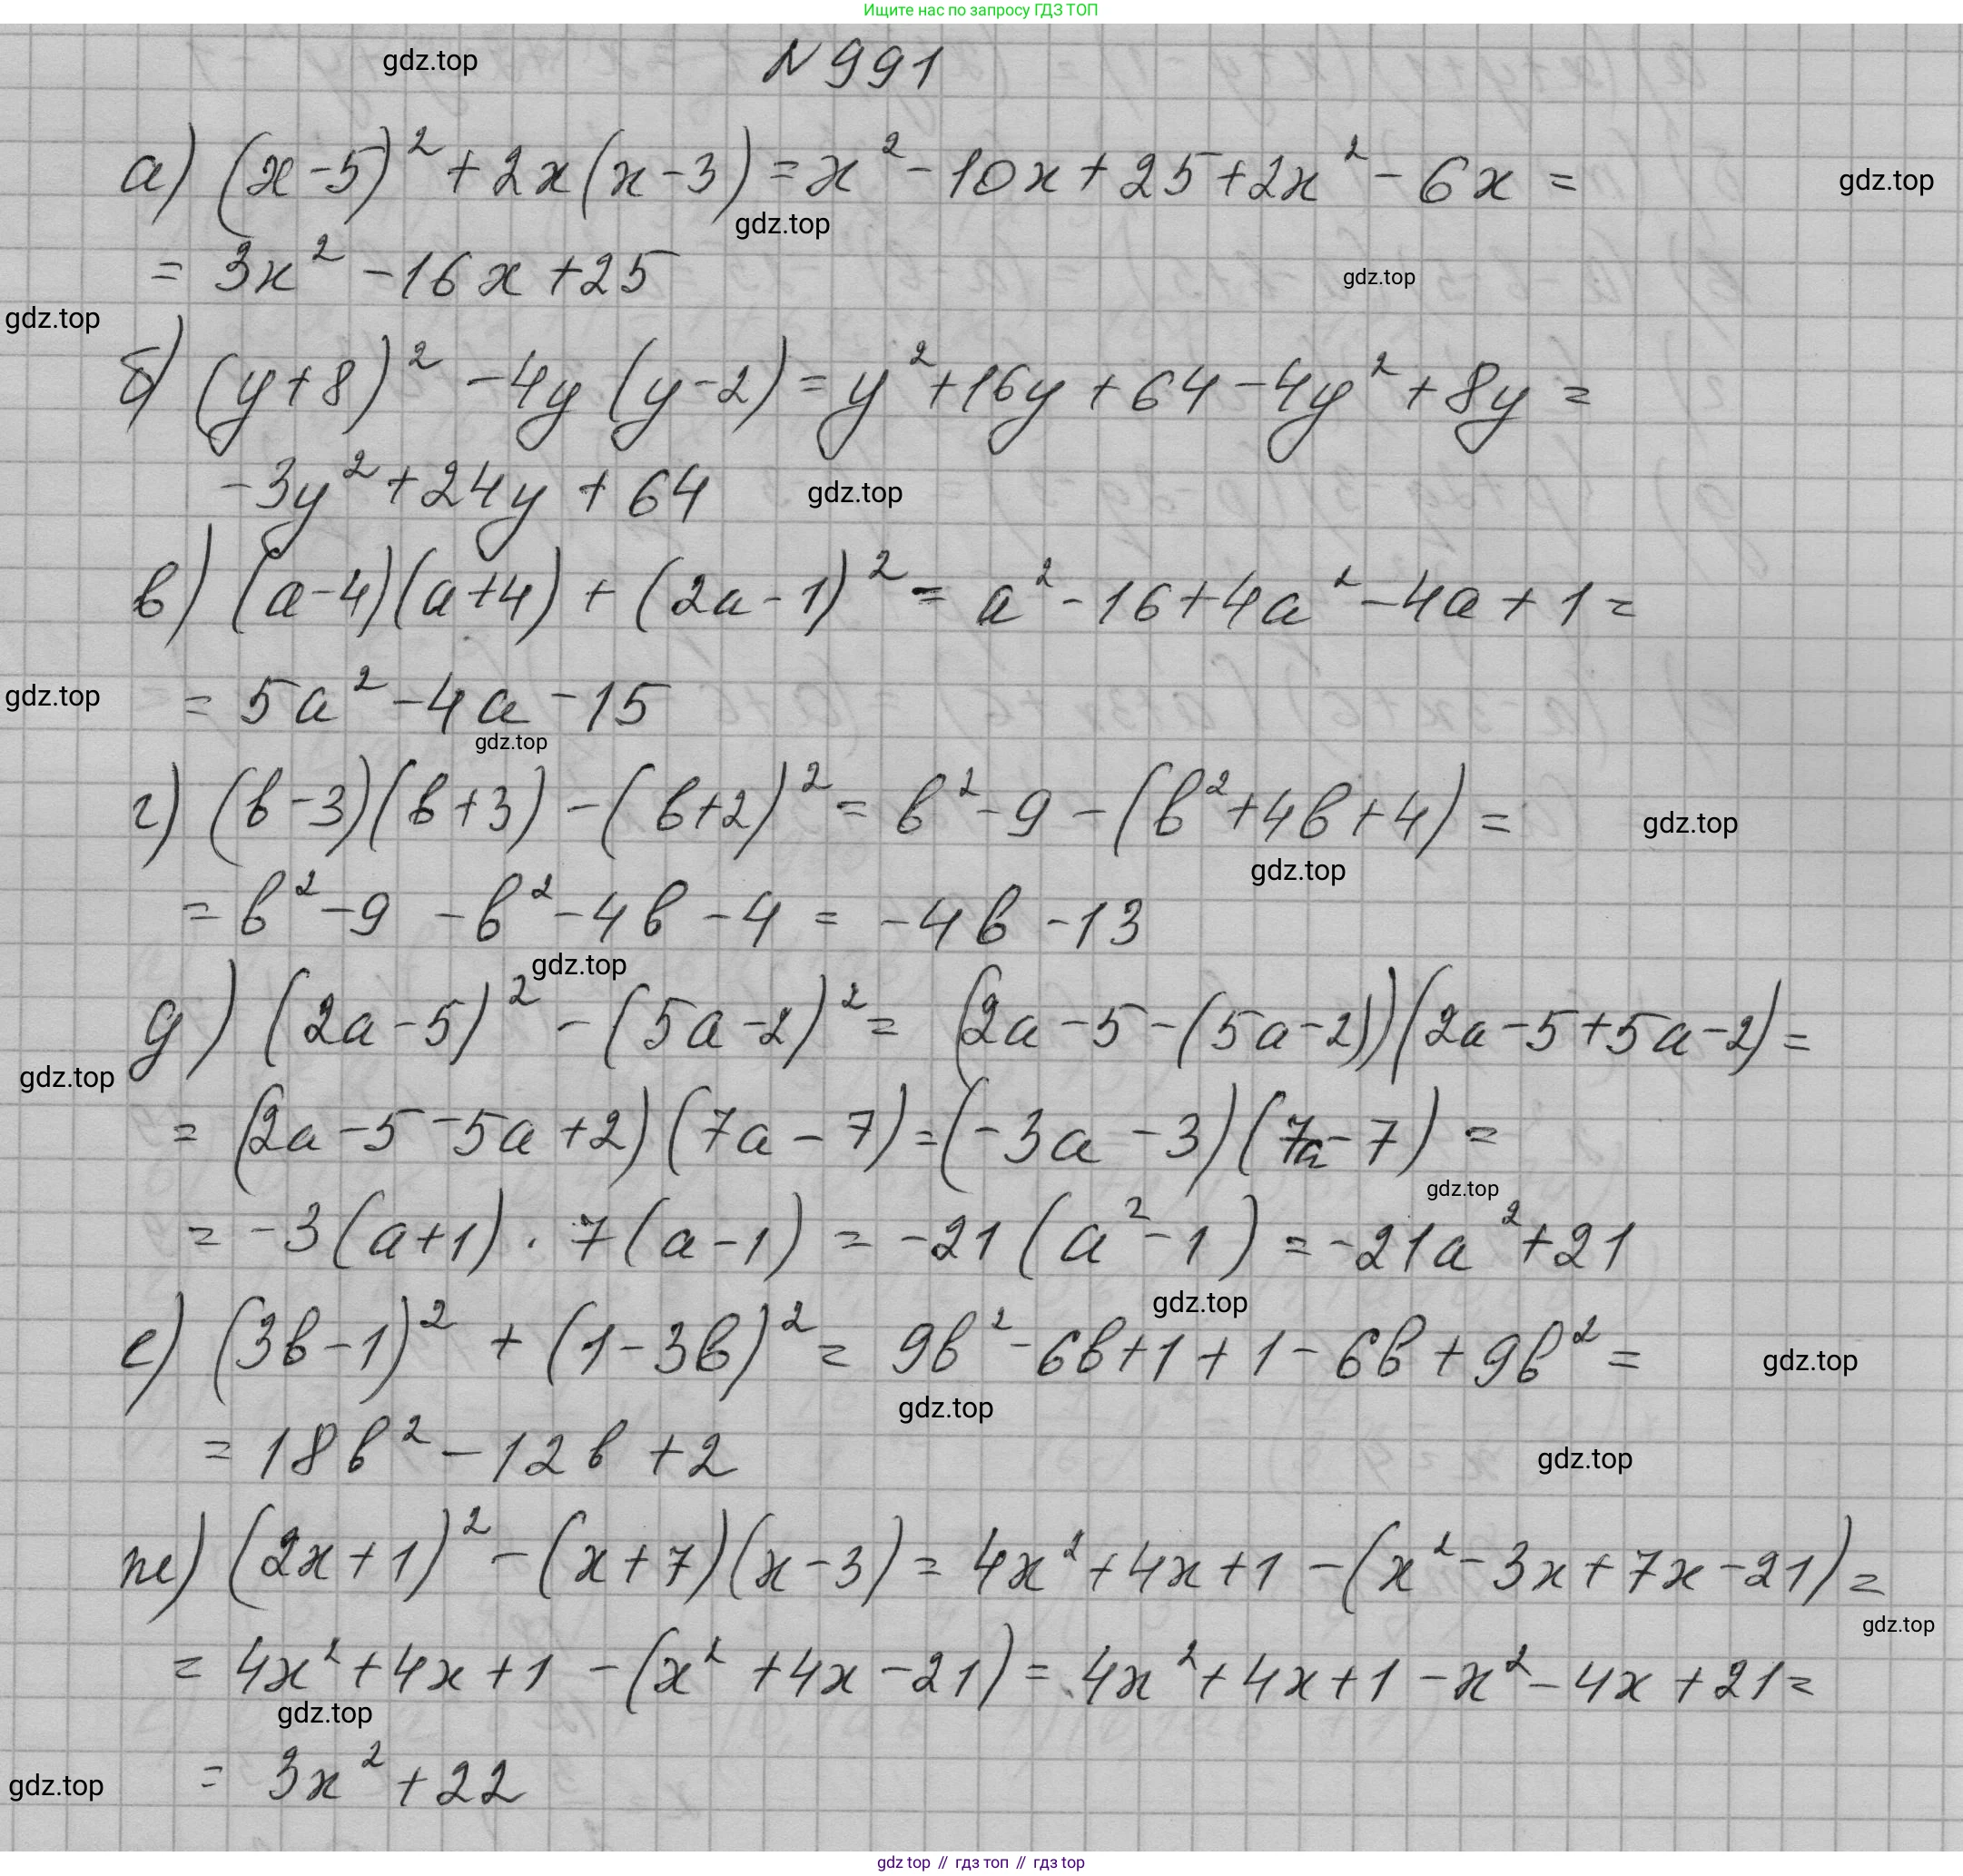 Ищите нас по запросу ГДЗ ТОП
gdz.top
№ 991
а) (x-5)² + 2x(x-3) = x² - 10x + 25 + 2x² - 6x =
gdz.top
gdz.top
= 3x² - 16x + 25
gdz.top
gdz.top
б) (y+8)² - 4y(y-2) = y² + 16y + 64 - 4y² + 8y =
-3y² + 24y + 64
gdz.top
в) (a-4)(a+4) + (2a-1)² = a² - 16 + 4a² - 4a + 1 =
gdz.top
= 5a² - 4a - 15
gdz.top
г) (b-3)(b+3) - (b+2)² = b² - 9 - (b² + 4b + 4) =
gdz.top
gdz.top
= b² - 9 - b² - 4b - 4 = -4b - 13
gdz.top
д) (2a-5)² - (5a-2)² = (2a-5-(5a-2))(2a-5+5a-2) =
gdz.top
= (2a-5-5a+2)(7a-7) = (-3a-3)(7a-7) =
gdz.top
= -3(a+1) · 7(a-1) = -21(a²-1) = -21a² + 21
gdz.top
е) (3b-1)² + (1-3b)² = 9b² - 6b + 1 + 1 - 6b + 9b² =
gdz.top
gdz.top
= 18b² - 12b + 2
gdz.top
ж) (2x+1)² - (x+7)(x-3) = 4x² + 4x + 1 - (x² - 3x + 7x - 21) =
gdz.top
= 4x² + 4x + 1 - (x² + 4x - 21) = 4x² + 4x + 1 - x² - 4x + 21 =
gdz.top
= 3x² + 22
gdz.top
gdz top // гдз топ // гдз top